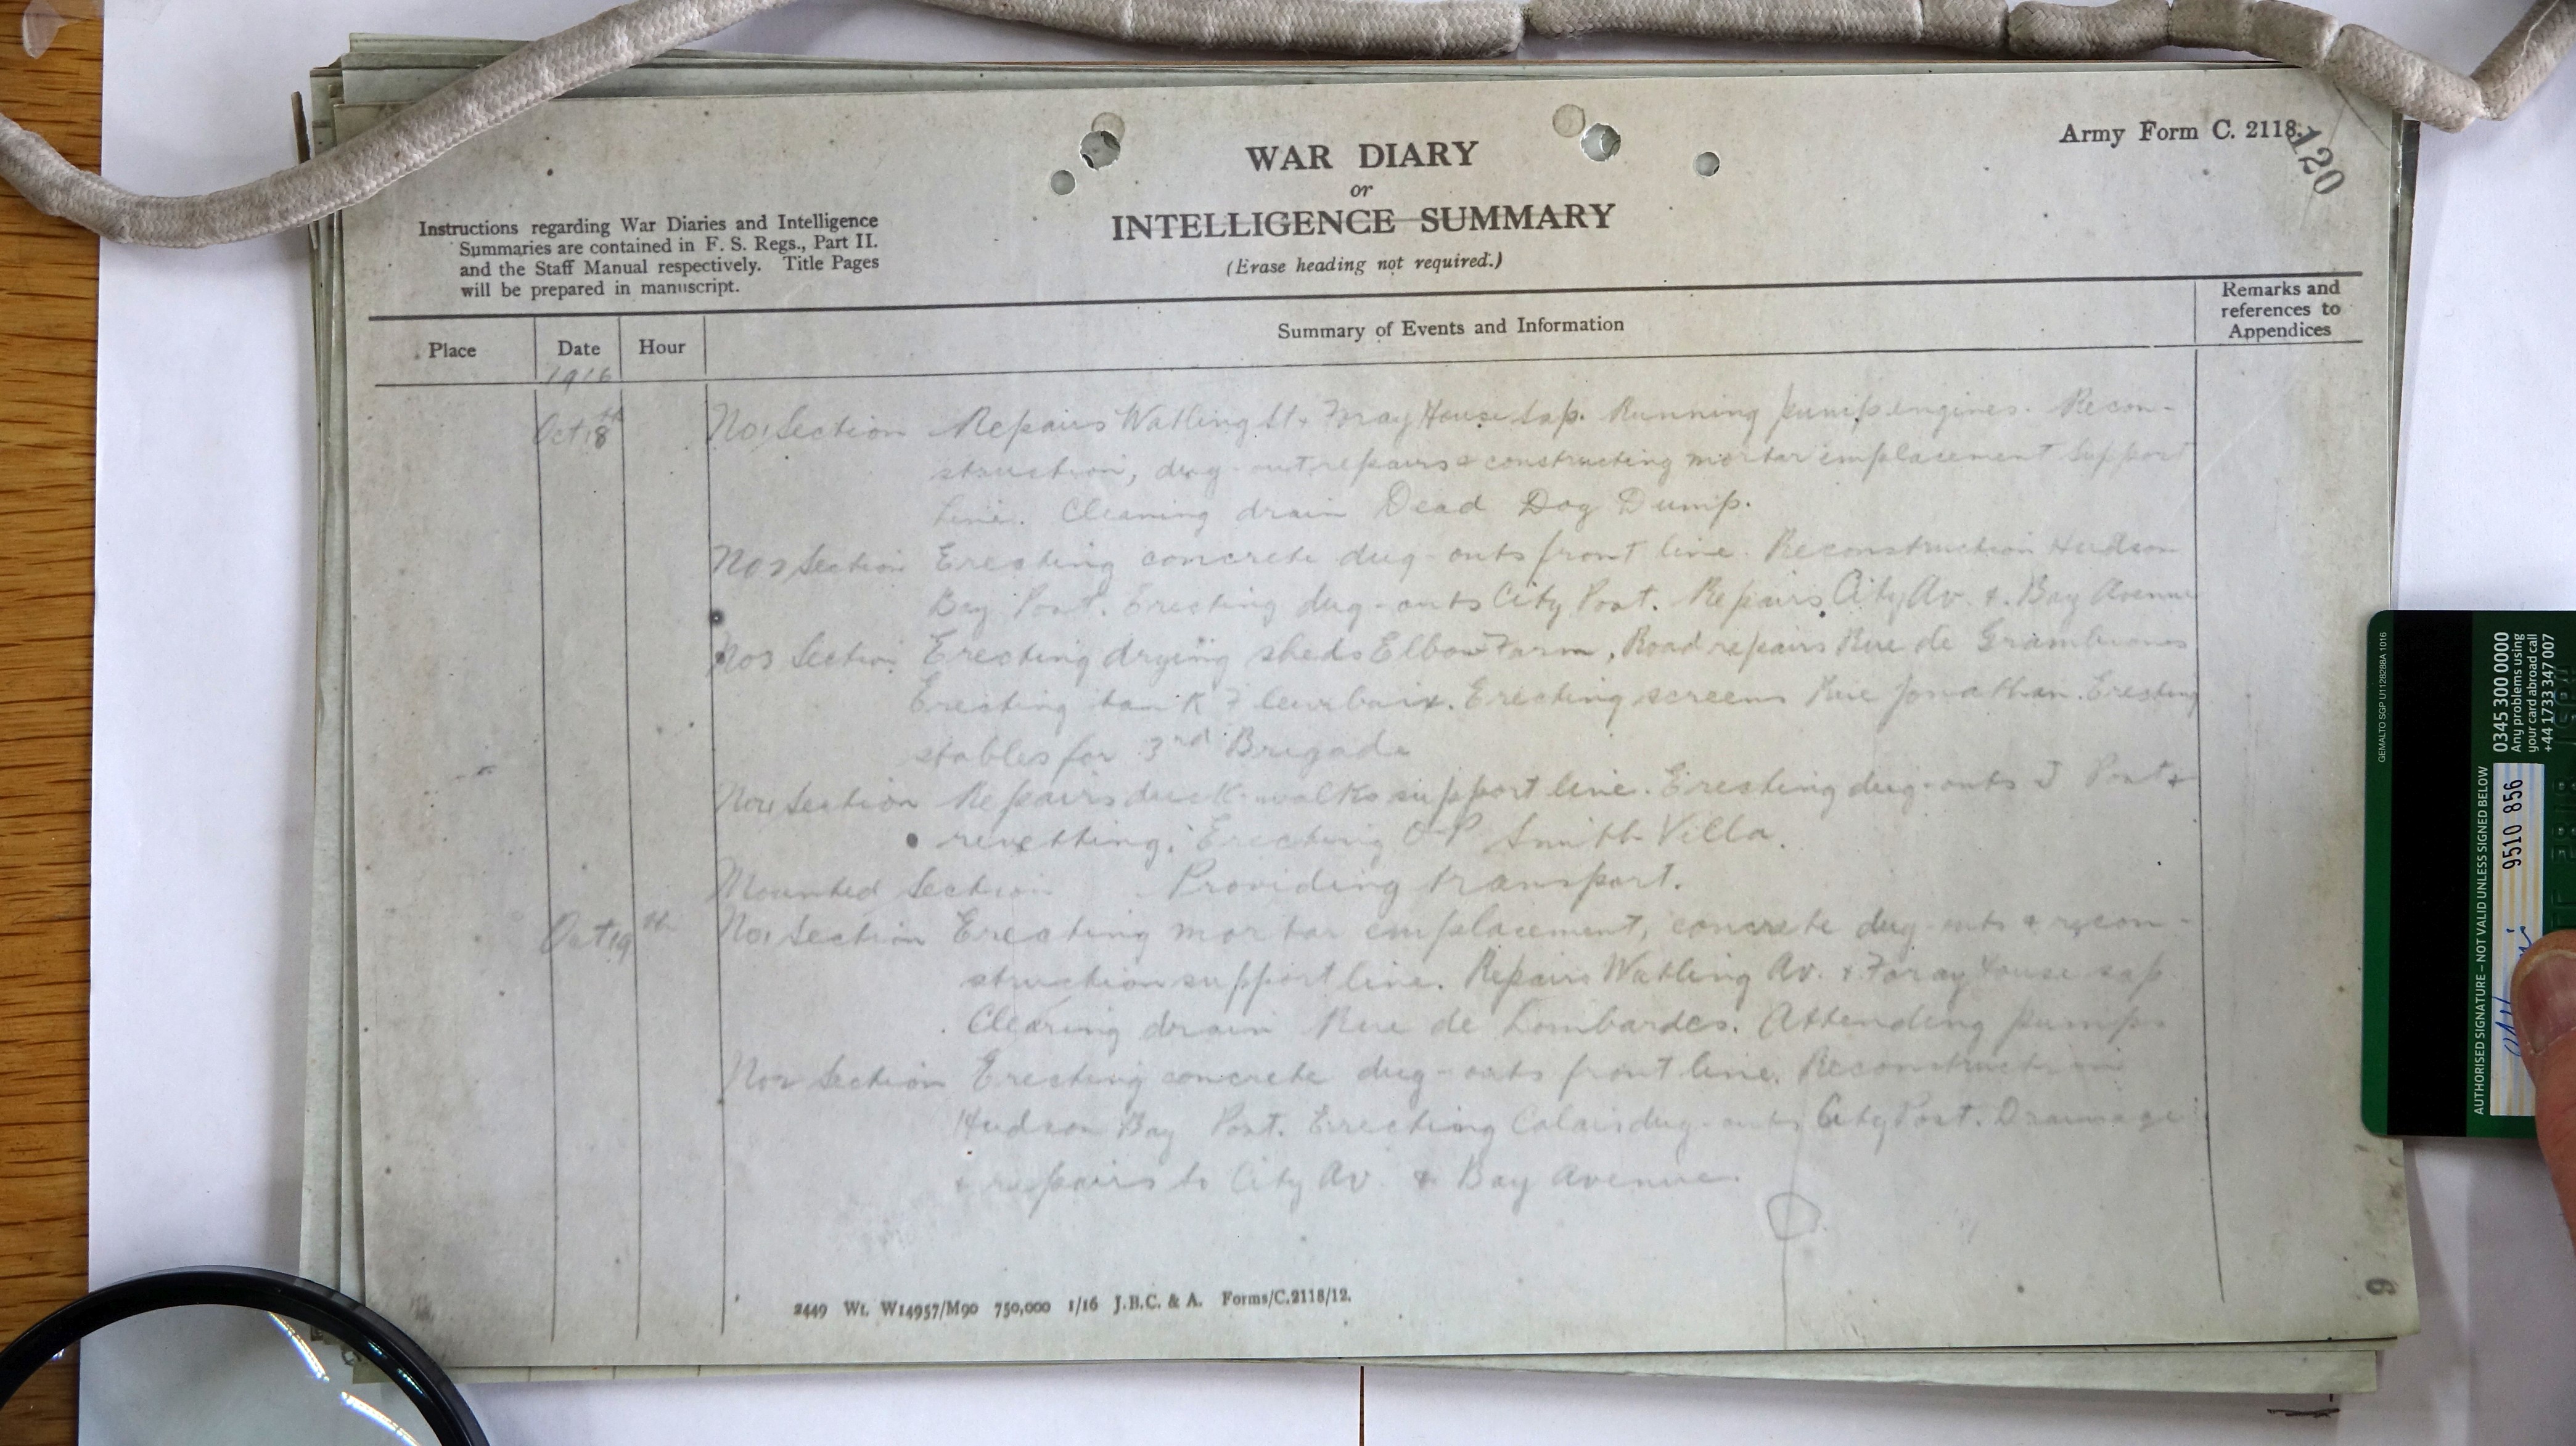 Army Form C. 2118.
120
WAR DIARY
or
INTELLIGENCE SUMMARY
(Erase heading not required.)
Instructions regarding War Diaries and Intelligence
Summaries are contained in F. S. Regs., Part II.
and the Staff Manual respectively. Title Pages
will be prepared in manuscript.
Place Date Hour Summary of Events and Information Remarks and references to Appendices
1916
Oct 18th No 1 Section Repairs Watling St & Foray House Sap. Running pump engines. Recon-
struction, dug-out repairs & constructing mortar emplacement Support
Line. Cleaning drain Dead Dog Dump.
No 2 Section Erecting concrete dug-outs front line. Reconstruction Hudson
Bay Post. Erecting dug-outs City Post. Repairs City Av. & Bay Avenue
No 3 Section Erecting drying sheds Elbow Farm, Road repairs Rue de
Erecting tank Fleurbaix. Erecting screens Rue Jonathan. Erecting
stables for 3rd Brigade
No 4 Section Repairs duck-walks support line. Erecting dug-outs J Post &
revetting. Erecting O-P Smith Villa.
Mounted Section Providing transport.
Oct 19th No 1 Section Erecting mortar emplacement, concrete dug-outs & recon-
struction support line. Repairs Watling Av. & Foray House sap
Clearing drain Rue de Lombardes. Attending pumps
No 2 Section Erecting concrete dug-outs front line. Reconstruction
Hudson Bay Post. Errecting Calais dug-outs City Post. Drainage
& repairs to City Av. & Bay Avenue.
2449 Wt. W14957/M90 750,000 1/16 J.B.C. & A. Forms/C.2118/12.
6
GEMALTO SGP U1128288A 1016
0345 300 0000
Any problems using
your card abroad call
+44 1733 347 007
AUTHORISED SIGNATURE – NOT VALID UNLESS SIGNED BELOW
9510 856